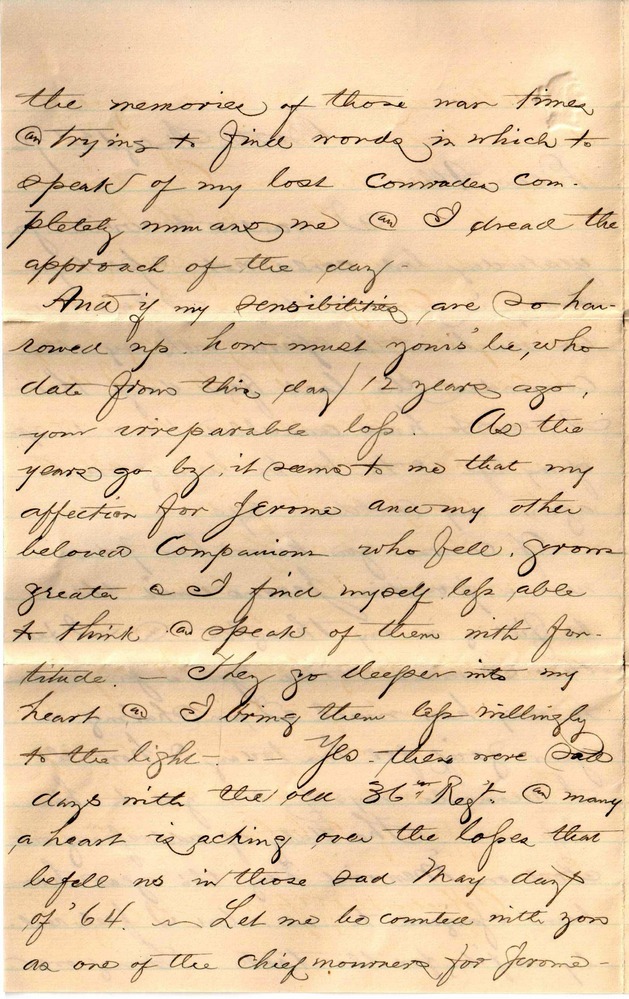 the memories of those war times
@ trying to find words in which to
speak of my lost Comrades com-
pletely unmans me @ I dread the
approach of the day -
And if my sensibilities are so har-
rowed up. how must yours be, who
date from this day 12 years ago,
your irreparable loss. As the
years go by, it seems to me that my
affection for Jerome and my other
beloved Companions who fell, grows
greater @ I find myself less able
to think @ speak of them with for-
titude. - They go deeper into my
heart @ I bring them less willingly
to the light - - - Yes. there were sad
days with the old 36th Regt. @ many
a heart is acking over the losses that
befell us in those sad May days
of '64. - Let me be counted with you
as one of the chief mourners for Jerome -